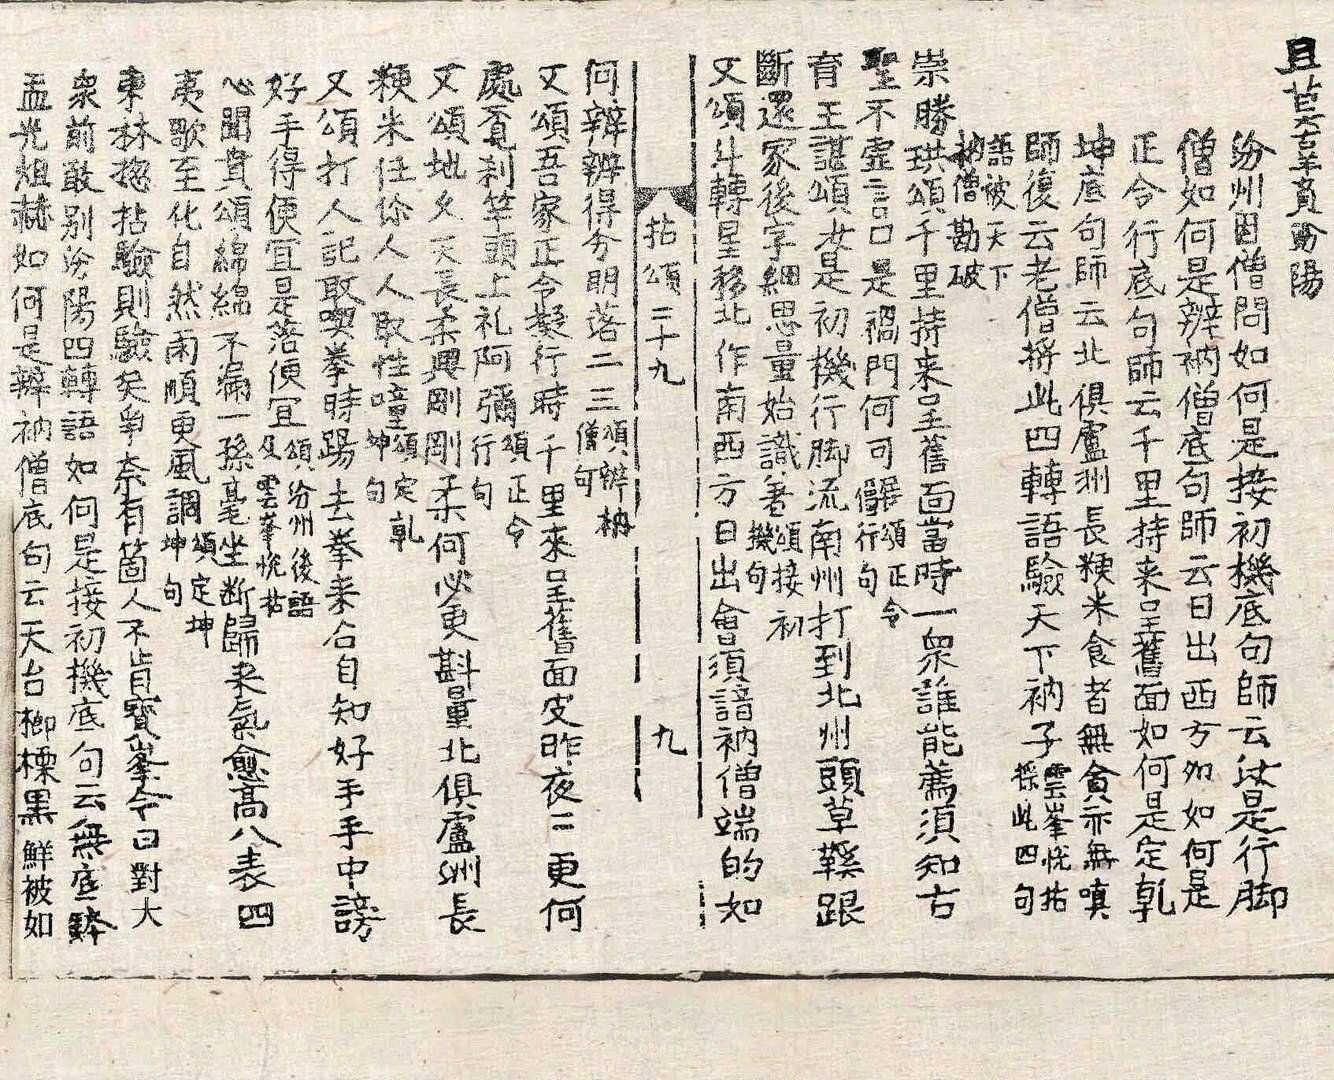 且莫古羊賁汾陽
汾州因僧問如何是接初機底句師云汝是行脚
僧如何是辨衲僧底句師云日出西方夘如何是
正令行底句師云千里持来呈舊面如何是定乹
坤底句師云北俱盧洲長粳米食者無貪亦無嗔
師復云老僧將此四轉語驗天下衲子雲峯恱拈採此四句
語被天下衲僧勘破
崇勝珙頌千里持来呈舊面當時一衆誰能薦須知古
聖不虚言口是禍門何可僭頌正令行句
育王諶頌汝是初機行脚流南州打到北州頭草鞵跟
斷還家後字細思量始識羞頌接初機句
又頌斗轉星移北作南西方日出會須諳衲僧端的如
拈頌二十九 九
何辨辨得分明落二三頌辨衲僧句
又頌吾家正令擬行時千里來呈舊面皮昨夜三更何
處覔刹竿頭上礼阿彌頌正令行句
又頌地久天長柔與剛剛柔何必更斟量北俱盧洲長
粳米任你人人取性噇頌定乹坤句
又頌打人記取喫拳時踢去拳来合自知好手手中謗
好手得便宜是落便宜頌汾州後語及雲峯恱拈
心聞賁頌綿綿不漏一絲毫坐断歸来氣愈高八表四
夷歌至化自然雨順更風調頌定坤坤句
東林揔拈驗則驗矣爭奈有箇人不肯寳峯今日對大
衆前敢别汾陽四轉語如何是接初機底句云無底鉢
盂光烜赫如何是辨衲僧底句云天台榔標黒鮮被如